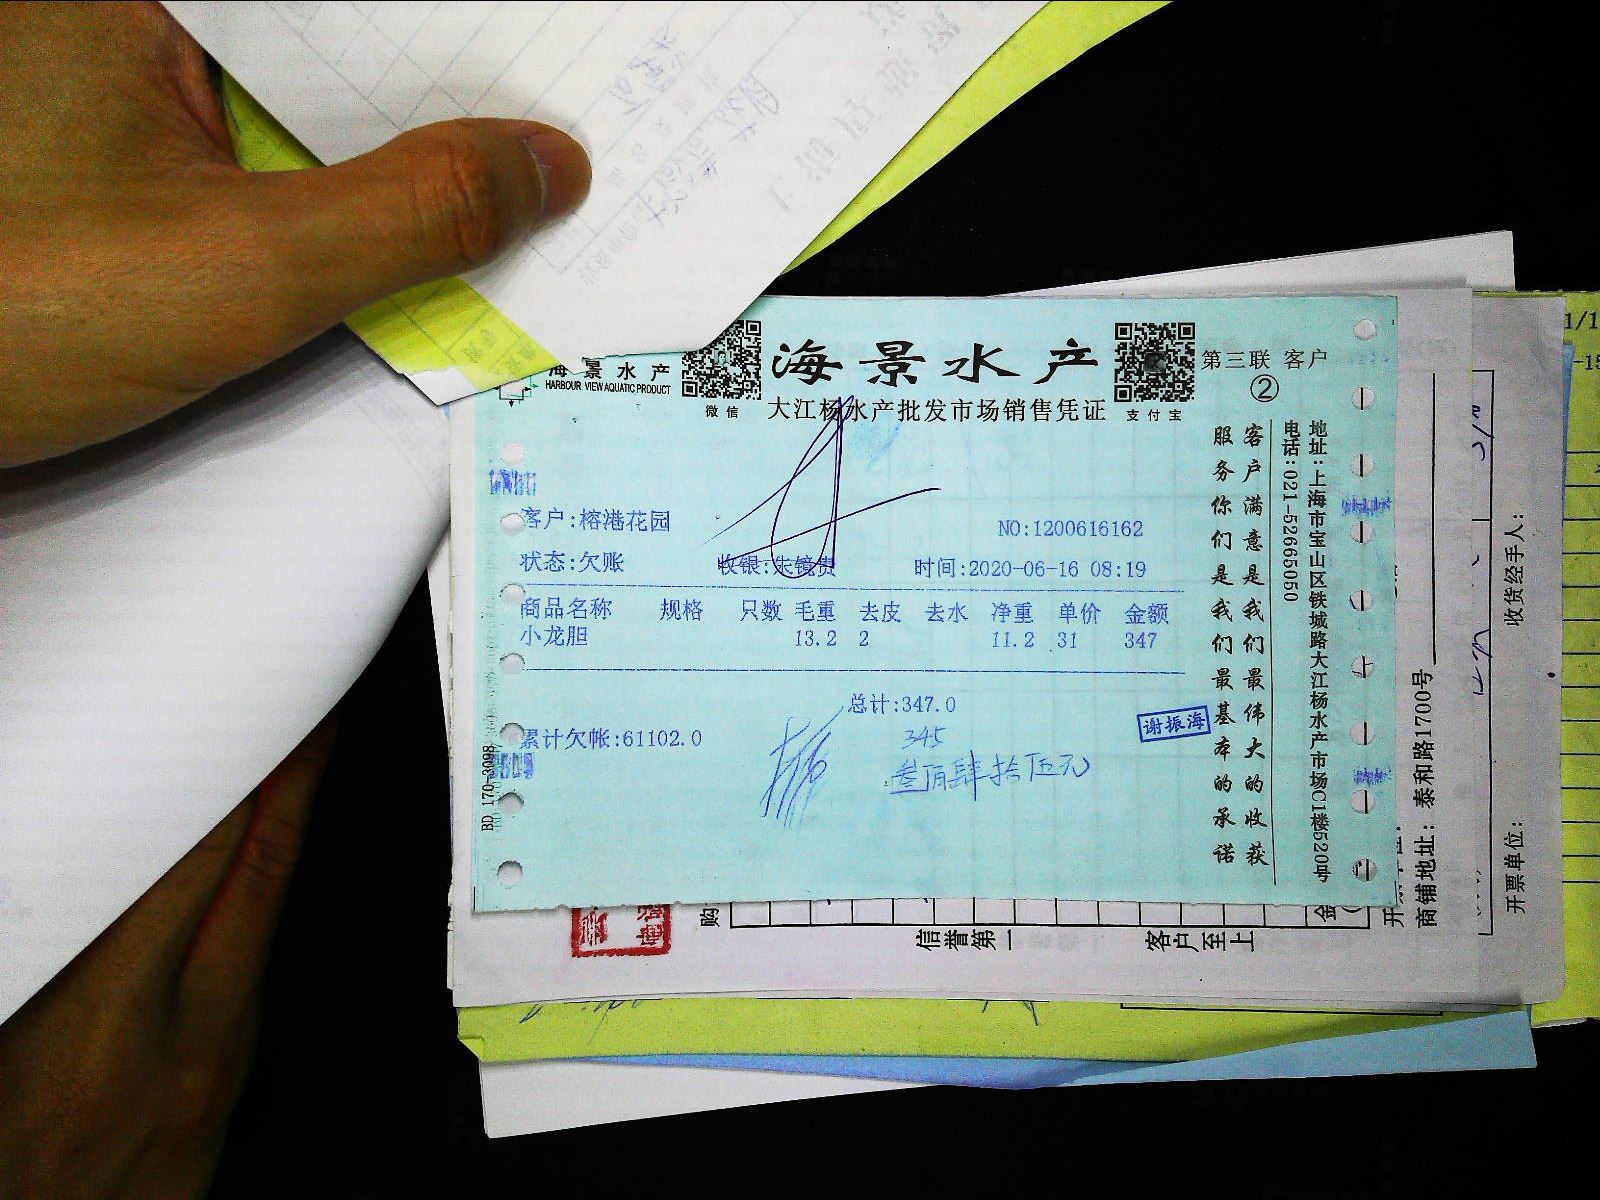 海景水产
HARBOUR VIEW AQUATIC PRODUCT
微信
海景水产
大江杨水产批发市场销售凭证
支付宝
第三联 客户
②
客户:榕港花园
NO:1200616162
状态:欠账
收银:朱镜贵
时间:2020-06-16 08:19
商品名称 规格 只数 毛重 去皮 去水 净重 单价 金额
小龙胆 13.2 2 11.2 31 347
总计:347.0
累计欠帐:61102.0
345
叁佰肆拾伍元
谢振海
客户满意是我们最伟大的收获
服务你们是我们最基本的承诺
地址:上海市宝山区铁城路大江杨水产市场C1楼520号
电话:021-52665050
BD 170-3098
购
信誉第一
客户至上
金
商铺地址：泰和路1700号
收货经手人：
开票单位：
1/1
-15